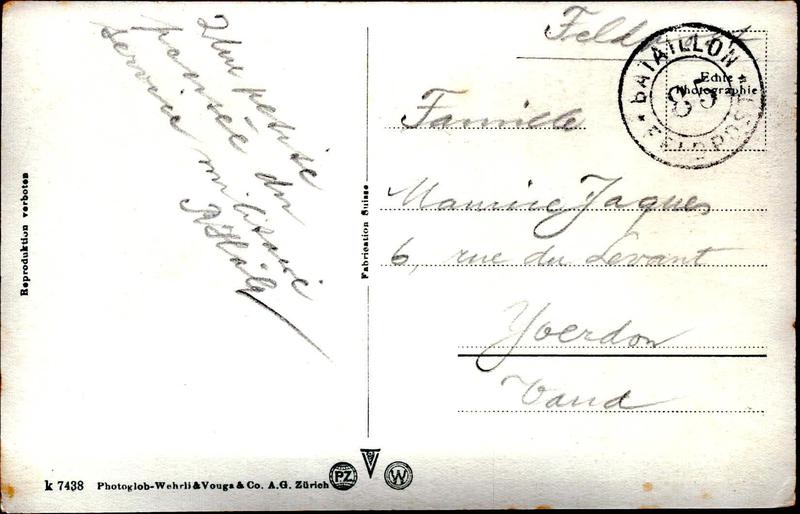 Une petite
pensée du
service militaire
Feldpost
BATAILLON
85
FELDPOST
Echte
Photographie
Famille
Maurice Jaques
6, rue du Levant
Yverdon
Vaud
Reproduktion verboten
Fabrication Suisse
k 7438 Photoglob-Wehrli & Vouga & Co. A.G. Zürich
PZ
W